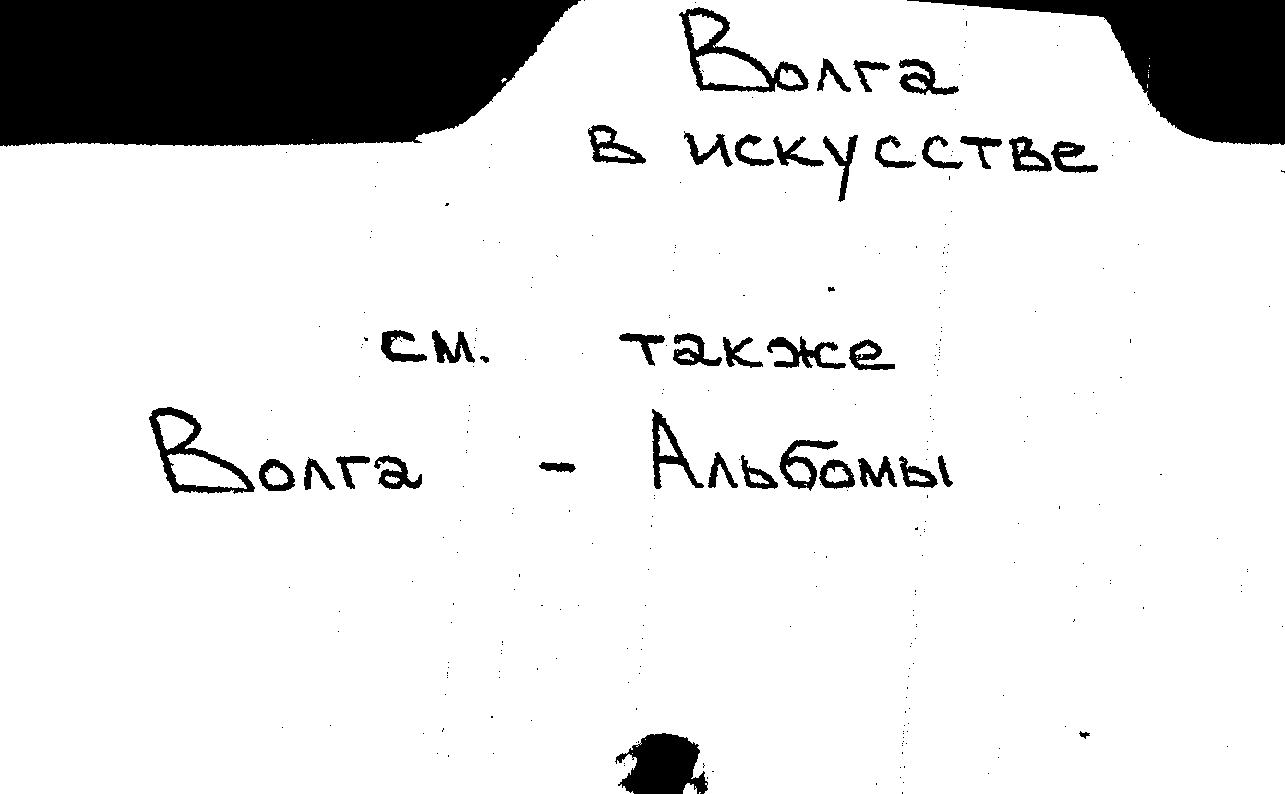 Волга
в искусстве
см. также
Волга - Альбомы